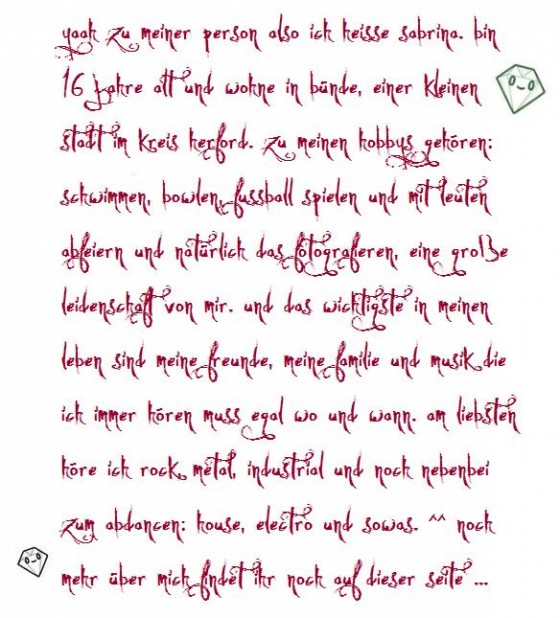 yaah zu meiner person also ich heisse sabrina. bin
16 jahre alt und wohne in bünde, einer kleinen
stadt im kreis herford. zu meinen hobbys gehören:
schwimmen, bowlen, fussball spielen und mit leuten
abfeiern und natürlich das fotografieren, eine große
leidenschaft von mir. und das wichtigste in meinen
leben sind meine freunde, meine familie und musik die
ich immer hören muss egal wo und wann. am liebsten
höre ich rock, metal, industrial und noch nebenbei
zum abdancen: house, electro und sowas. ^^ noch
mehr über mich findet ihr noch auf dieser seite ...